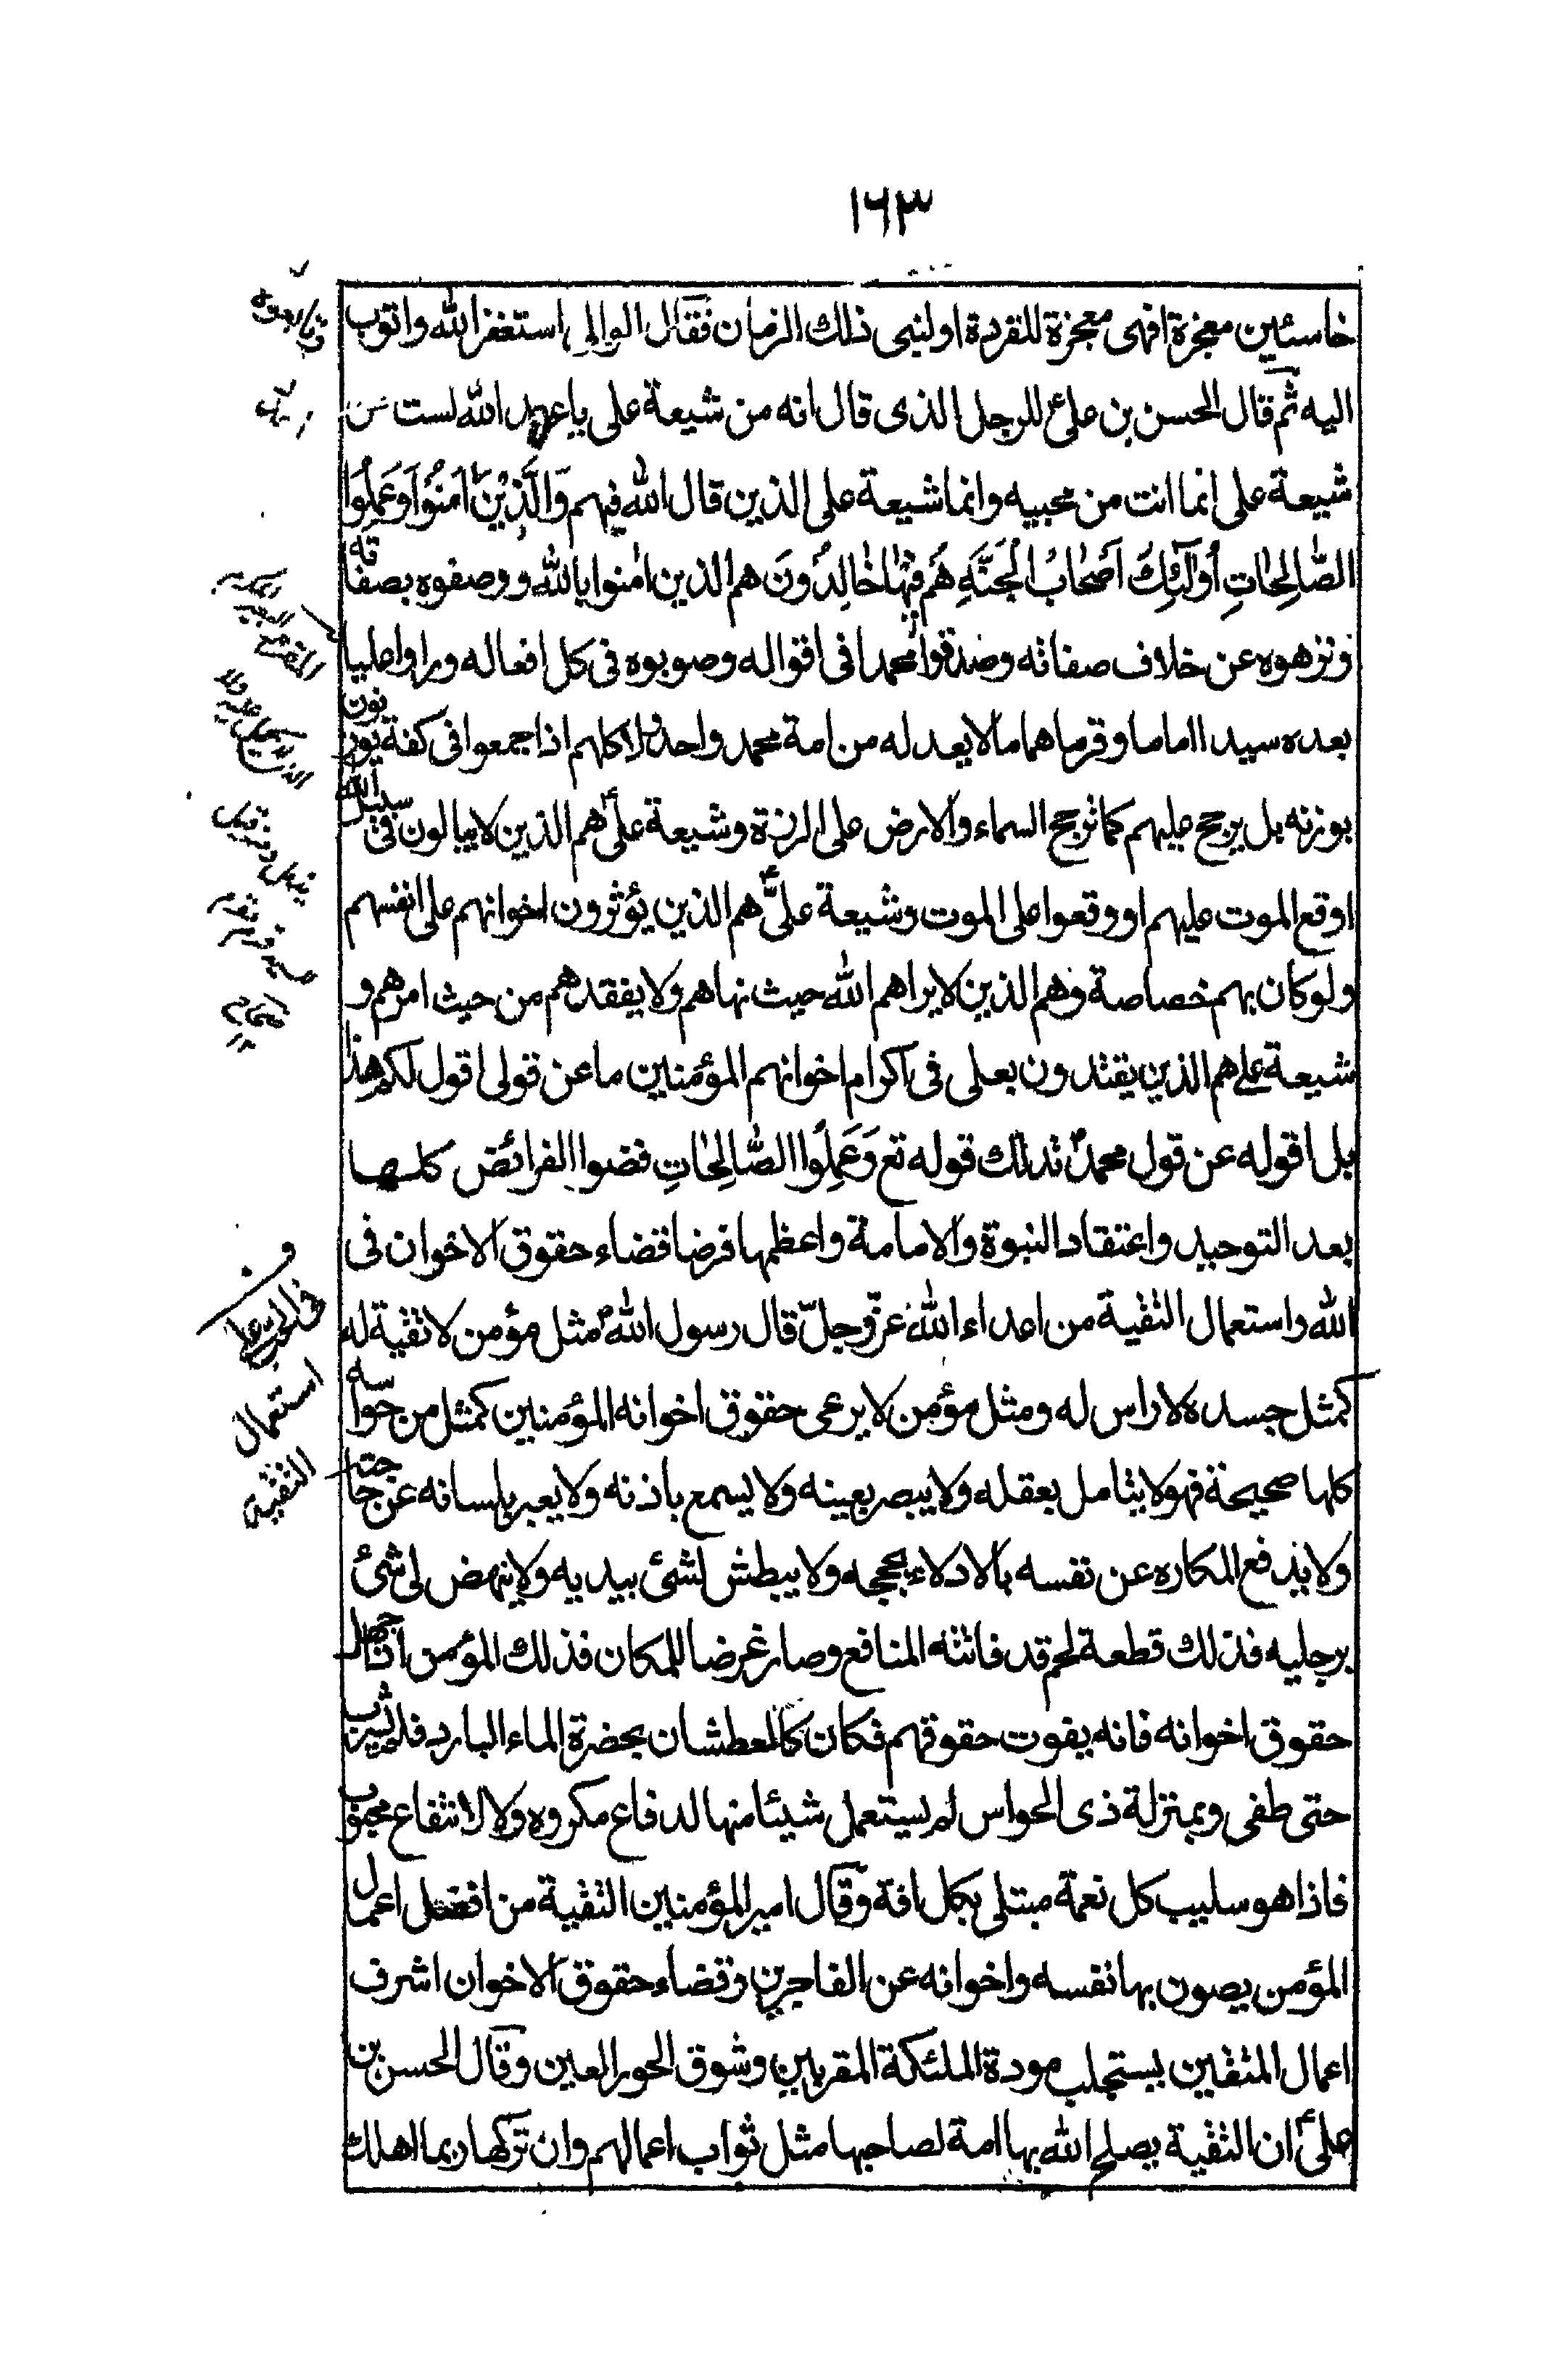 ١٦٣
خاسئين معجزة افهى معجزة للقردة او لنبى ذلك الزمان فقال الوالى استغفر الله واتوب
اليه ثم قال الحسن بن على ع للرجل الذى قال انه من شيعة على يا عبد الله لست من
شيعة على انما انت من محبيه وانما شيعة على الذين قال الله فيهم وَالَّذِيْنَ اٰمَنُوْا وَعَمِلُوا
الصّٰالِحٰاتِ اُولٰٓئِكَ اَصْحٰابُ الْجَنَّةِ هُمْ فِيْهٰا خٰالِدُونَ هم الذين اٰمنوا بالله ووصفوه بصفاته
ونزهوه عن خلاف صفاته وصدقوا محمدا فى اقواله وصوبوه فى كل افعاله وراوا عليا
بعده سيدا اماما وقرما هماما لا يعدله من امة محمد واحد ولا كلهم اذا جمعوا فى كفة يوزنون
بوزنه بل يرجح عليهم كما ترجح السماء والارض على الرزة وشيعة على ع هم الذين لا يبالون فى سبيل الله
اوقع الموت عليهم او وقعوا على الموت وشيعة على ع هم الذين يؤثرون اخوانهم على انفسهم
ولو كان بهم خصاصة وهم الذين لا يراهم الله حيث نهاهم ولا يفقدهم من حيث امرهم و
شيعة على هم الذين يقتدون بعلى فى اكرام اخوانهم المؤمنين ما عن قولى اقول لكم هذا
بل اقوله عن قول محمد ص فذلك قوله تع وَعَمِلُوا الصّٰالِحٰاتِ قضوا الفرائض كلها
بعد التوحيد واعتقاد النبوة والامامة واعظمها فرضا قضاء حقوق الاخوان فى
الله واستعمال التقية من اعداء الله عزّ وجلّ قال رسول الله ص مثل مؤمن لا تقية له
كمثل جسده لا راس له ومثل مؤمن لا يرعى حقوق اخوانه المؤمنين كمثل من حواسه
كلها صحيحة فهو لا يتامل بعقله ولا يبصر بعينه ولا يسمع باذنه ولا يعبر بلسانه عن حاجته
ولا يدفع المكاره عن نفسه بالادلاء بحججه ولا يبطش لشئ بيديه ولا ينهض لى شئ
برجليه فذلك قطعة لحم قد فاتته المنافع وصار غرضا للمكان فذلك المؤمن اذا جهل
حقوق اخوانه فانه يفوت حقوقهم فكان كالعطشان بحضرة الماء البارد فلم يشرب
حتى طفى وبمنزلة ذى الحواس لم يستعمل شيئا منها لدفاع مكروه ولا لانتفاع محبوب
فاذا هو سليب كل نعمة مبتلى بكل افة وقال امير المؤمنين التقية من افضل اعمال
المؤمن يصون بها نفسه واخوانه عن الفاجرين وقضاء حقوق الاخوان اشرف
اعمال المتقين يستجلب مودة الملئكة المقربين وشوق الحور العين وقال الحسن بن
على ع ان التقية يصلح الله بها امة لصاحبها مثل ثواب اعمالهم وان تركها ربما اهلك
استعمال
التقية